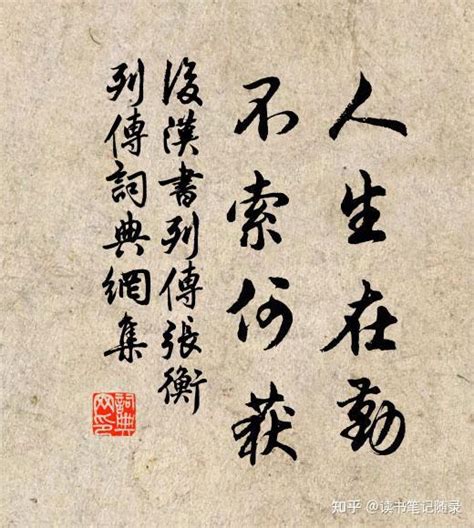 人生在勤
不索何获
後漢書列傳張衡
列傳詞典網集
詞典网印
知乎 @读书笔记随录